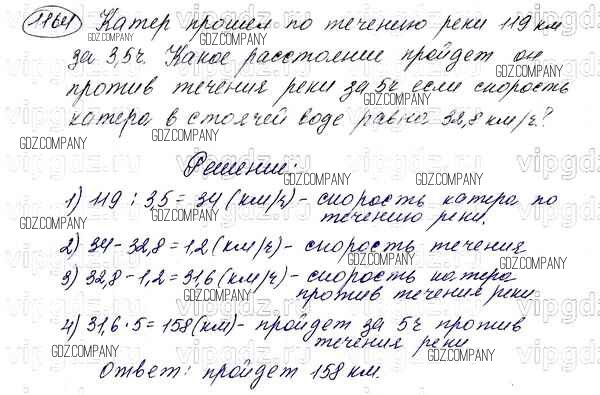 1164 Катер прошел по течению реки 119 км
за 3,5ч. Какое расстояние пройдет он
против течения реки за 5ч если скорость
катера в стоячей воде равна 32,8 км/ч?
Решение:
1) 119 : 3,5 = 34 (км/ч) - скорость катера по
течению реки.
2) 34 - 32,8 = 1,2 (км/ч) - скорость течения
3) 32,8 - 1,2 = 31,6 (км/ч) - скорость катера
против течения реки
4) 31,6 · 5 = 158 (км) - пройдет за 5ч против
течения реки
Ответ: пройдет 158 км.
GDZ.COMPANY
vipgdz.ru